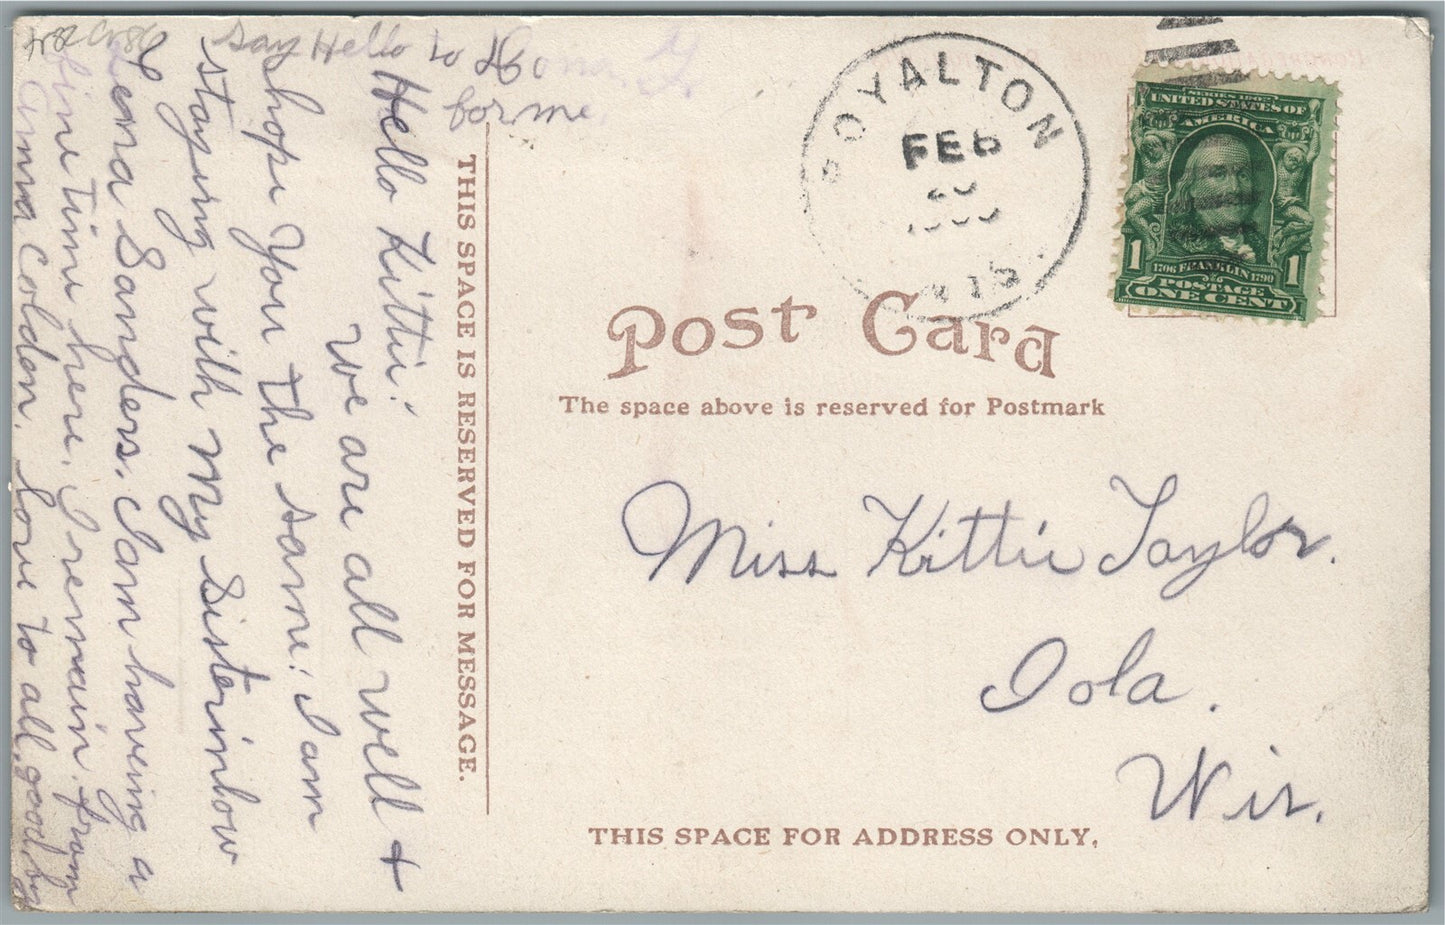 Say Hello to
for me.
Hello Kittie!
We are all well +
hope you the same. I am
staying with my sisterinlow
Lena Sanders. I am having a
fine time here. I remain from
Anna Colden. love to all, good by
THIS SPACE IS RESERVED FOR MESSAGE.
ROYALTON
FEB
WIS
SERIES 1902
UNITED STATES OF
AMERICA
1 1
1706 FRANKLIN 1790
POSTAGE
ONE CENT
Post Card
The space above is reserved for Postmark
Miss Kittie Taylor.
Iola.
Wis.
THIS SPACE FOR ADDRESS ONLY.